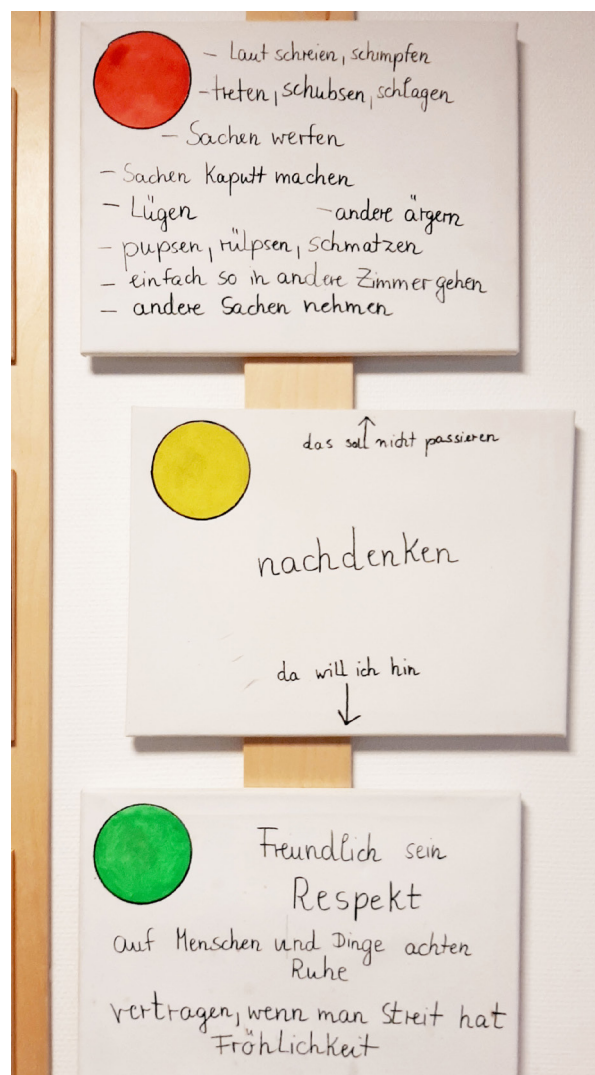 - Laut schreien, schimpfen
- treten, schubsen, schlagen
- Sachen werfen
- Sachen Kaputt machen
- Lügen - andere ärgern
- pupsen, rülpsen, schmatzen
- einfach so in andere Zimmer gehen
- andere Sachen nehmen
das soll nicht passieren
nachdenken
da will ich hin
Freundlich sein
Respekt
auf Menschen und Dinge achten
Ruhe
vertragen, wenn man Streit hat
Fröhlichkeit